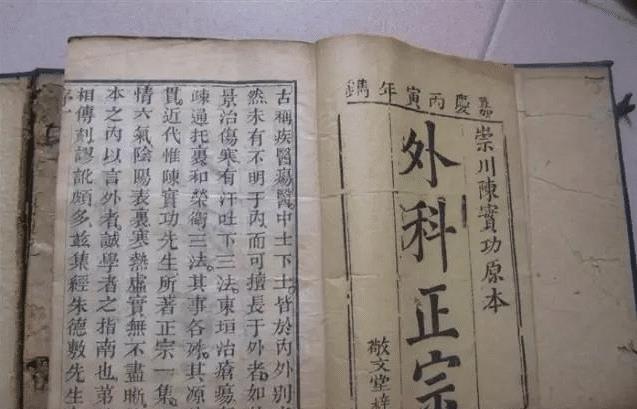 嘉慶丙寅年鐫
崇川陳實功原本
外科正宗
敬文堂梓
古稱疾醫瘍醫中士下士皆於內外別
然未有不明于內而可擅長于外者如
景治傷寒有汗吐下三法。東垣治瘡瘍
疎通托裏和榮衛三法。其事各殊。其源
貫。近代惟陳實功先生所著正宗一集。
情六氣陰陽表裏寒熱虛實。無不盡晰
本之內以言外者。誠學者之指南也。第
相傳刻謬訛頗多。茲集經朱德敷先生
序